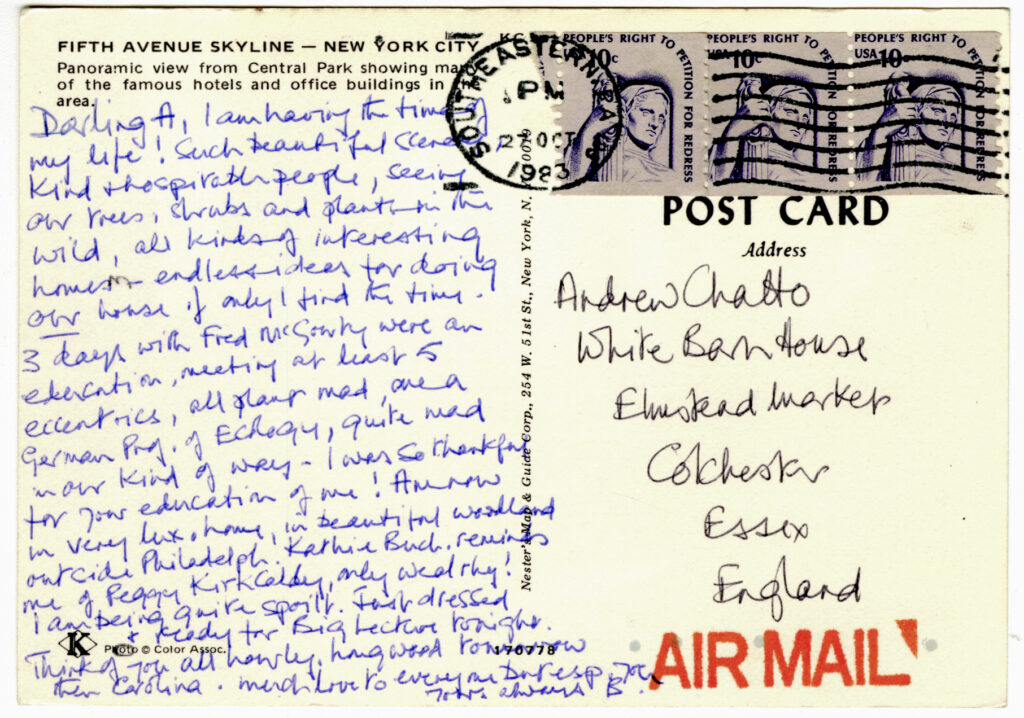 FIFTH AVENUE SKYLINE — NEW YORK CITY
Panoramic view from Central Park showing many
of the famous hotels and office buildings in
area.
Darling A, I am having the time of
my life! Such beautiful scenery,
kind + hospitable people, seeing
our trees, shrubs and plants in the
wild, all kinds of interesting
homes – endless ideas for doing
our house if only I find the time.
3 days with Fred McGourty were an
education, meeting at least 5
eccentrics, all plant mad, one a
German Prof. of Ecology, quite mad
in our kind of way – I was so thankful
for your education of me! Am now
in very lux. home, in beautiful woodland
outside Philadelph. Kathie Buch. reminds
me of Peggy Kirkcaldy, only wealthy!
I am being quite spoilt. Just dressed
+ ready for Big Lecture tonight.
Think of you all hourly. Longwood tomorrow
then Carolina. much love to everyone But esp. you
Yours always B.
K
Photo © Color Assoc.
170778
Nester's Map & Guide Corp., 254 W. 51st St., New York, N. 10019
SOUTHEASTERN PA
PM
27 OCT
1983
PEOPLE'S RIGHT TO PETITION FOR REDRESS
10c
PEOPLE'S RIGHT TO PETITION FOR REDRESS
USA 10c
PEOPLE'S RIGHT TO PETITION FOR REDRESS
USA 10c
POST CARD
Address
Andrew Chatto
White Barn House
Elmstead Market
Colchester
Essex
England
AIR MAIL